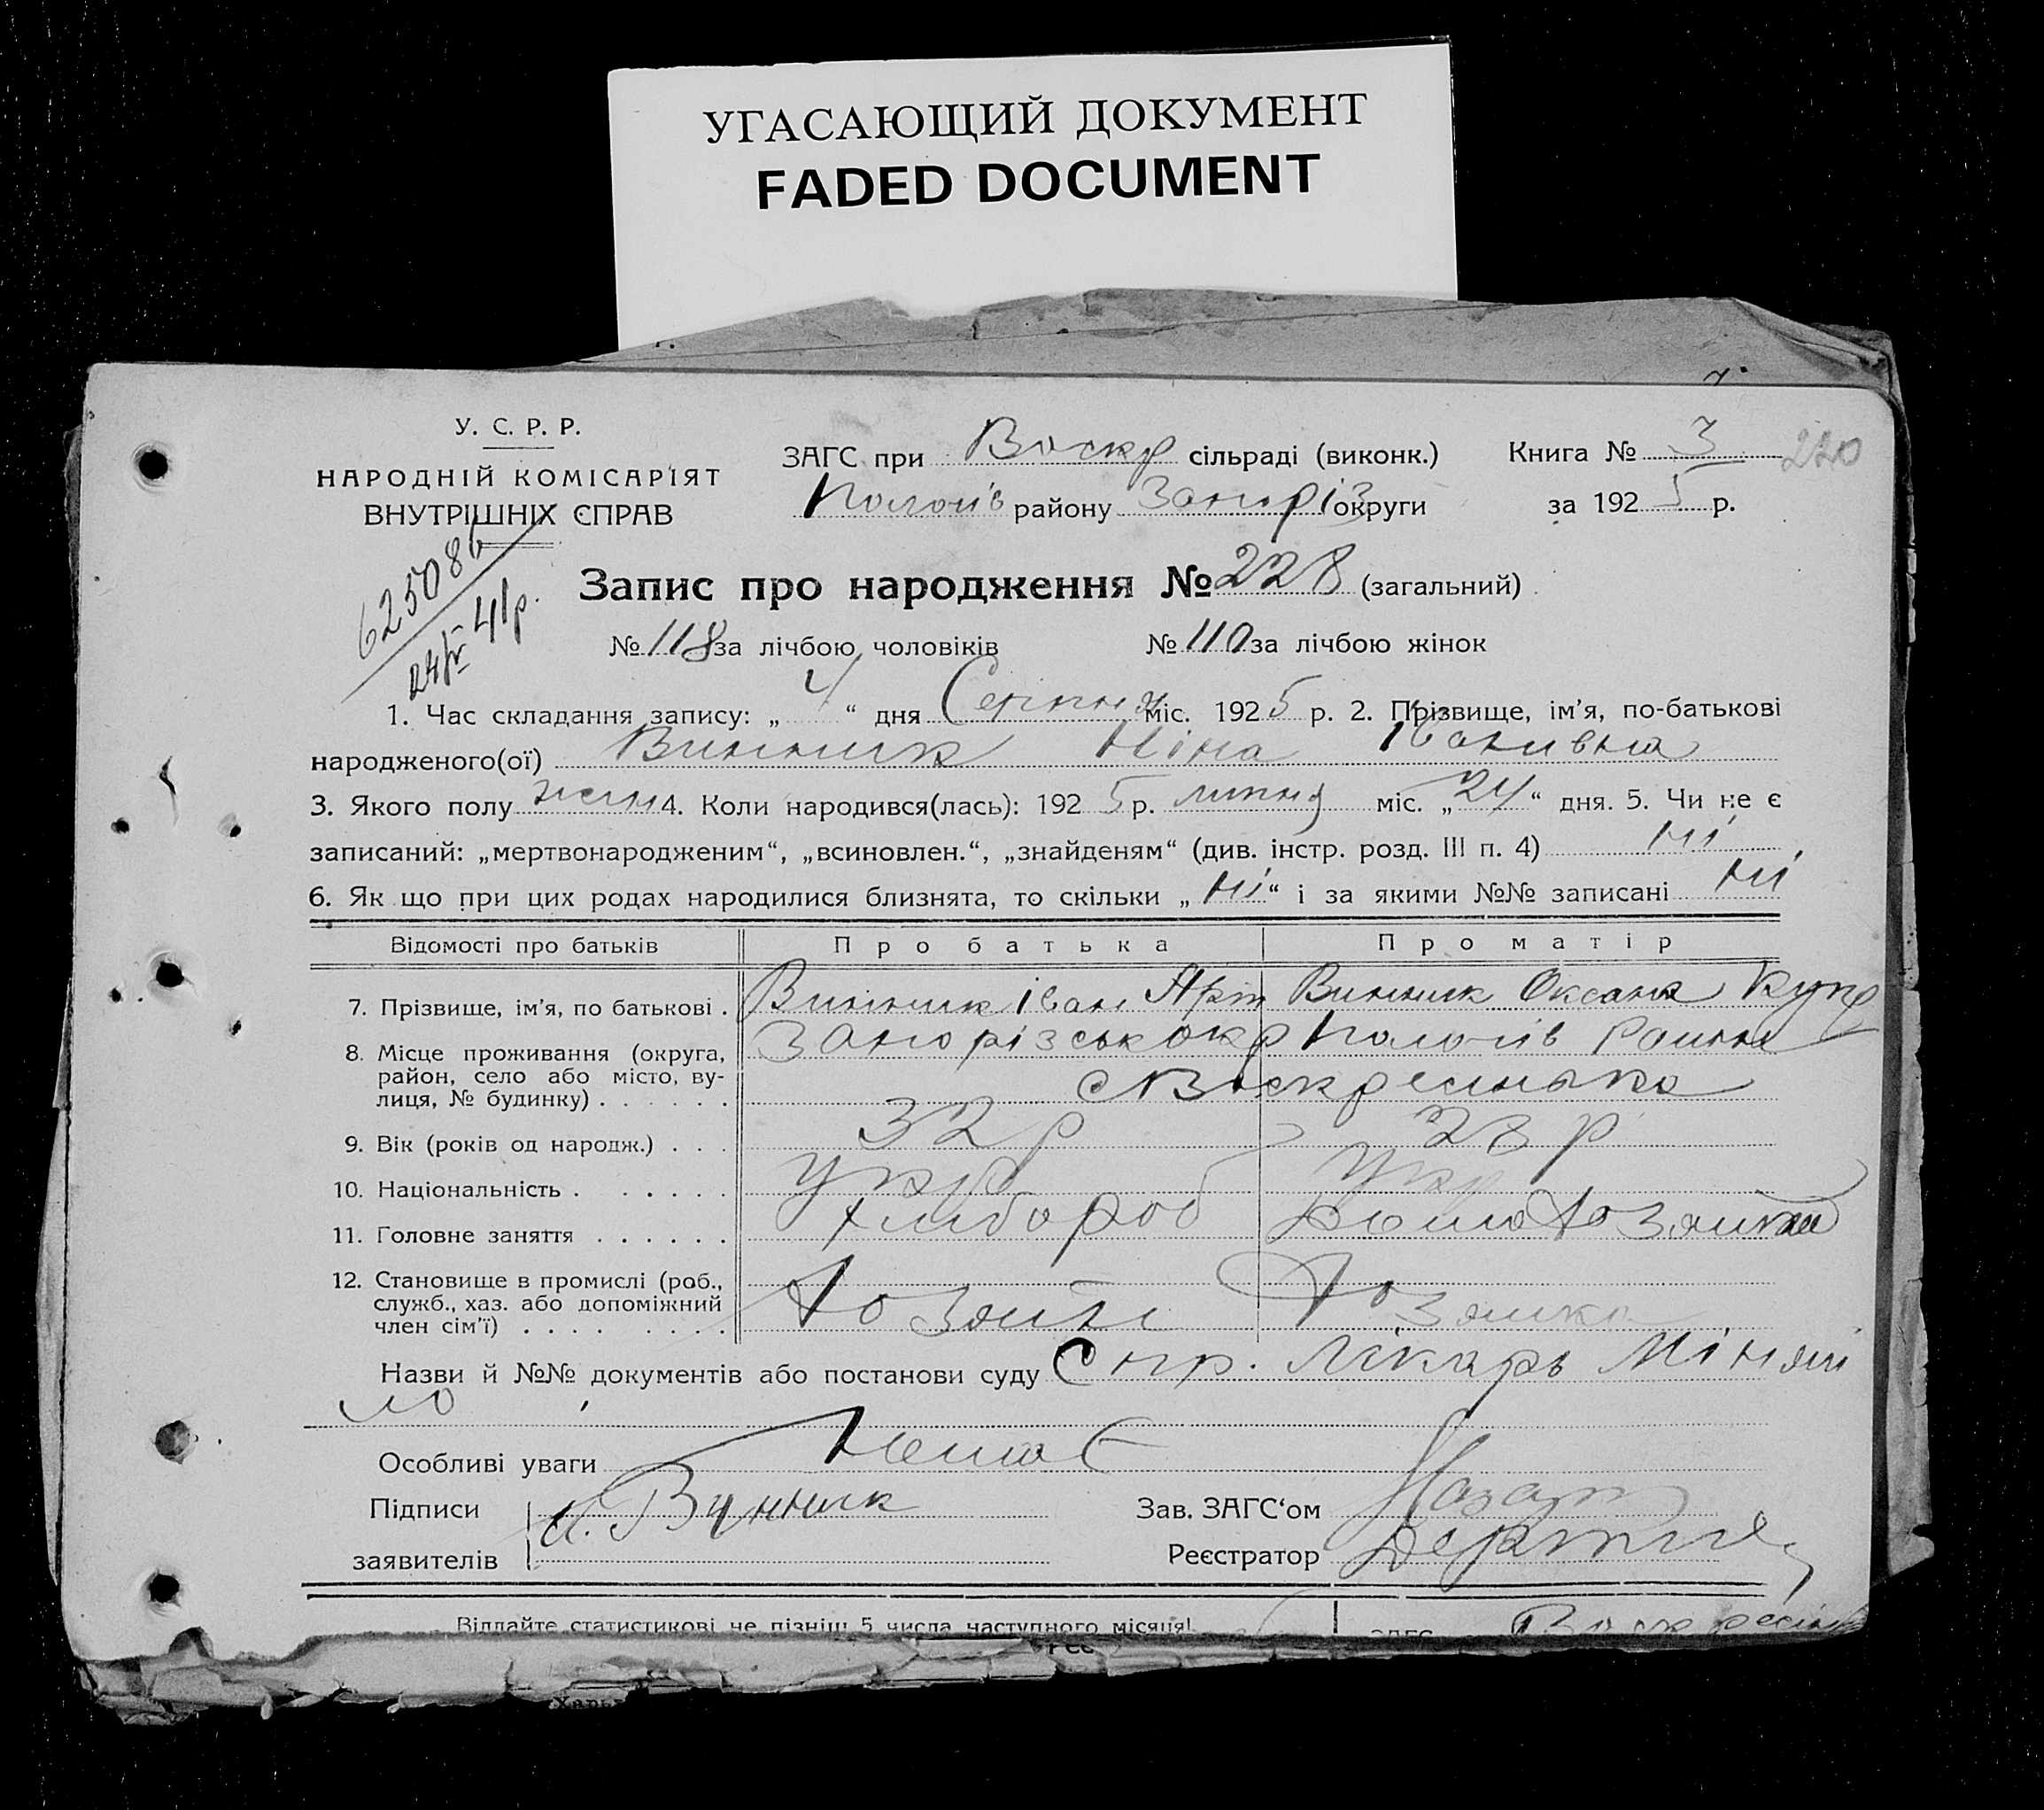 УГАСАЮЩИЙ ДОКУМЕНТ
FADED DOCUMENT
У. С. Р. Р.
НАРОДНІЙ КОМІСАРІЯТ
ВНУТРІШНІХ СПРАВ
625086
41р.
ЗАГС при Воскр сільраді (виконк.)
Пологів району Запоріз округи
Книга № 3
220
за 1925 р.
Запис про народження № 228 (загальний)
№ 118 за лічбою чоловіків № 110 за лічбою жінок
1. Час складання запису: „ 4 “ дня Серпня міс. 1925 р. 2. Прізвище, ім’я, по-батькові
народженого(ої) Винник Ніна Іванивна
3. Якого полу жін 4. Коли народився(лась): 1925 р. липня міс. „24“ дня. 5. Чи не є
записаний: „мертвонародженим“, „всиновлен.“, „знайденям“ (див. інстр. розд. III п. 4) ні
6. Як що при цих родах народилися близнята, то скільки „ні“ і за якими №№ записані ні
Відомості про батьків Про батька Про матір
7. Прізвище, ім’я, по батькові . Винник Іван Арт Винник Оксана Купр
8. Місце проживання (округа, Запорізськ окр Пологів Району
район, село або місто, ву-
лиця, № будинку) . . . . . . с Воскресинька
9. Вік (років од народж.) . . . 32 р 28 р
10. Національність . . . . . . укр укр
11. Головне заняття . . . . . . хлібороб домохозяйка
12. Становище в промислі (роб.,
служб., хаз. або допоміжний
член сім’ї) . . . . . . . . хозяїн хозяйка
Назви й №№ документів або постанови суду Спр. Лікарь Міняй
ло
Особливі уваги Немає
Підписи Винник Зав. ЗАГС‘ом
заявителів Реєстратор
Віддайте статистикові не пізніш 5 числа наступного місяця!
ЗАГС
Харьк